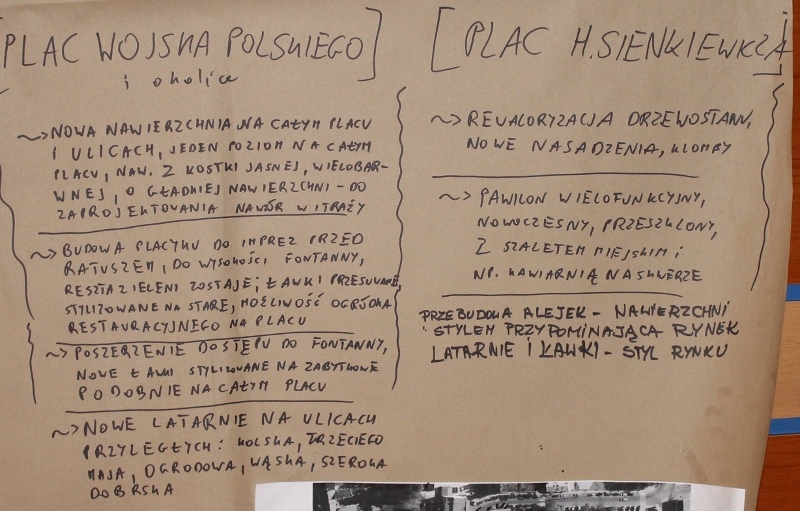 [PLAC WOJSKA POLSKIEGO]
i okolice
~> NOWA NAWIERZCHNIA NA CAŁYM PLACU
I ULICACH, JEDEN POZIOM NA CAŁYM
PLACU, NAW. Z KOSTKI JASNEJ, WIELOBAR-
WNEJ, O GŁADKIEJ NAWIERZCHNI - DO
ZAPROJEKTOWANIA NAWÓR WITRAŻY
~> BUDOWA PLACYKU DO IMPREZ PRZED
RATUSZEM, DO WYSOKOŚCI FONTANNY,
RESZTA ZIELENI ZOSTAJE; ŁAWKI PRZESUWANE,
STYLIZOWANE NA STARE, MOŻLIWOŚĆ OGRÓDKA
RESTAURACYJNEGO NA PLACU
~> POSZERZENIE DOSTĘPU DO FONTANNY,
NOWE ŁAWKI STYLIZOWANE NA ZABYTKOWE
PODOBNIE NA CAŁYM PLACU
~> NOWE LATARNIE NA ULICACH
PRZYLEGŁYCH: KOLSKA, TRZECIEGO
MAJA, OGRODOWA, WĄSKA, SZEROKA
DOBRSKA
[PLAC H. SIENKIEWICZA]
~> REWALORYZACJA DRZEWOSTANU,
NOWE NASADZENIA, KLOMBY
~> PAWILON WIELOFUNKCYJNY,
NOWOCZESNY, PRZESZKLONY,
Z SZALETEM MIEJSKIM i
NP. KAWIARNIĄ NA SKWERZE
PRZEBUDOWA ALEJEK - NAWIERZCHNI
STYLEM PRZYPOMINAJĄCA RYNEK
LATARNIE I ŁAWKI - STYL RYNKU